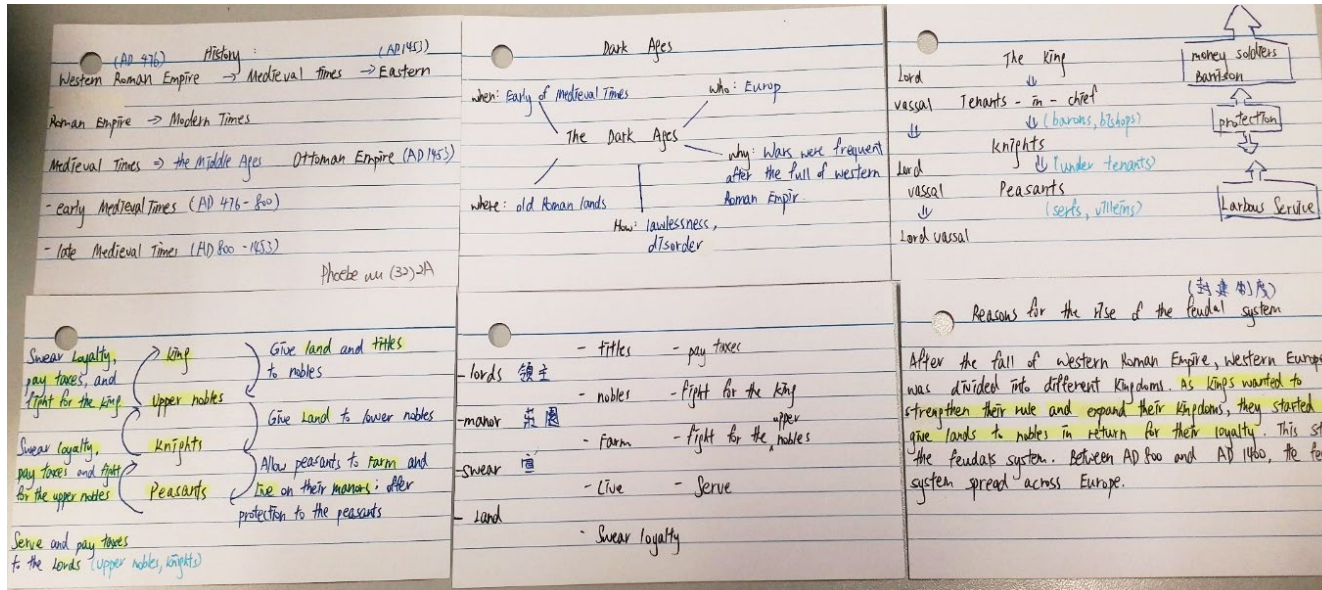 (AD 476) History: (AD1453)
Western Roman Empire → Medieval times → Eastern
Roman Empire → Modern Times
Medieval Times ⇒ the Middle Ages Ottoman Empire (AD1453)
- early Medieval Times (AD 476-800)
- late Medieval Times (AD 800-1453)
(32) 2A
Dark Ages
when: Early of Medieval Times
who: Europ
The Dark Ages
why: Wars were frequent
after the full of western
Roman Empir.
where: old Roman lands
How: lawlessness,
disorder
The King
Lord
vassal Tenants - in - chief
⇓ (barons, bishops)
knights
Lord ⇓ (under tenants)
vassal Peasants
⇓ (serfs, villeins)
Lord vassal
money soldiers
protection
Larbous Service
Swear Loyalty,
pay taxes, and
fight for the king
Swear loyalty,
pay taxes and fight
for the upper nobles
Serve and pay taxes
to the Lords (upper nobles, knights)
king
upper nobles
knights
Peasants
Give land and titles
to nobles
Give Land to lower nobles
Allow peasants to Farm and
Live on their manors; offer
protection to the peasants
- titles - pay taxes
- lords 領主
- nobles - fight for the king
- manor 莊園
upper
- Farm - fight for the nobles
- swear 宣
- Live - Serve
- Land
- Swear loyalty
(封建制度)
Reasons for the rise of the feudal system
After the fall of western Roman Empire, western Europ
was divided into different kingdoms. As kings wanted to
strengthen their rule and expand their kingdoms, they started
give lands to nobles in return for their loyalty. This st
the feudals system. Between AD 800 and AD 1400, the fe
system spread across Europe.